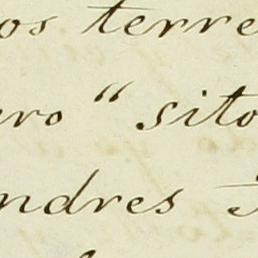 os terre
ero " sito
ndres